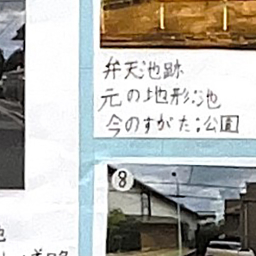 弁天池跡
元の地形:池
今のすがた:公園
⑧